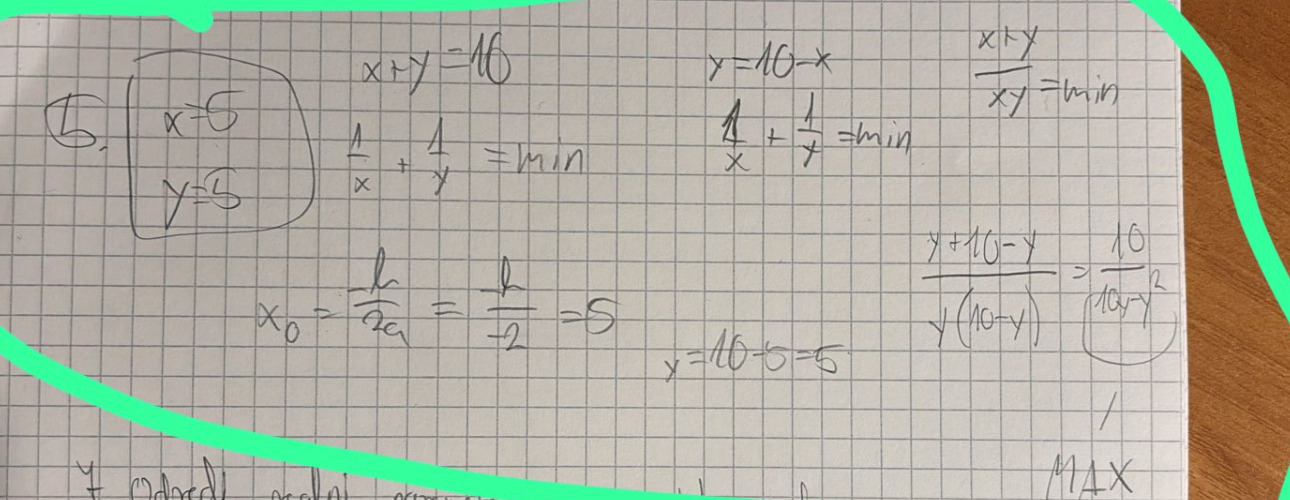 5.
x=5
y=5
x+y=10
1/x + 1/y = min
y=10-x
1/x + 1/y = min
x+y/xy = min
y+10-y/y(10-y) = 10/10y-y²
/
MAX
x₀ = -b/2a = -b/-2 = 5
y=10-5=5
7